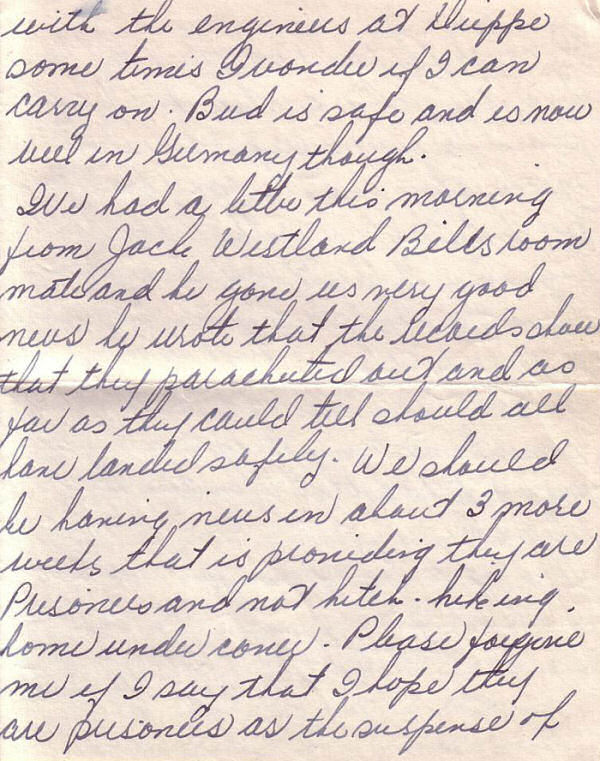 with the engineers at Dieppe
some times I wonder if I can
carry on. Bud is safe and is now
well in Germany though.
We had a letter this morning
from Jack Westland Bills room
mate and he gave us very good
news he wrote that the records show
that they parachuted out and as
far as they could tell should all
have landed safely. We should
be having news in about 3 more
weeks that is providing they are
Prisoners and not hitch-hiking
home under cover. Please forgive
me if I say that I hope they
are prisoners as the suspense of